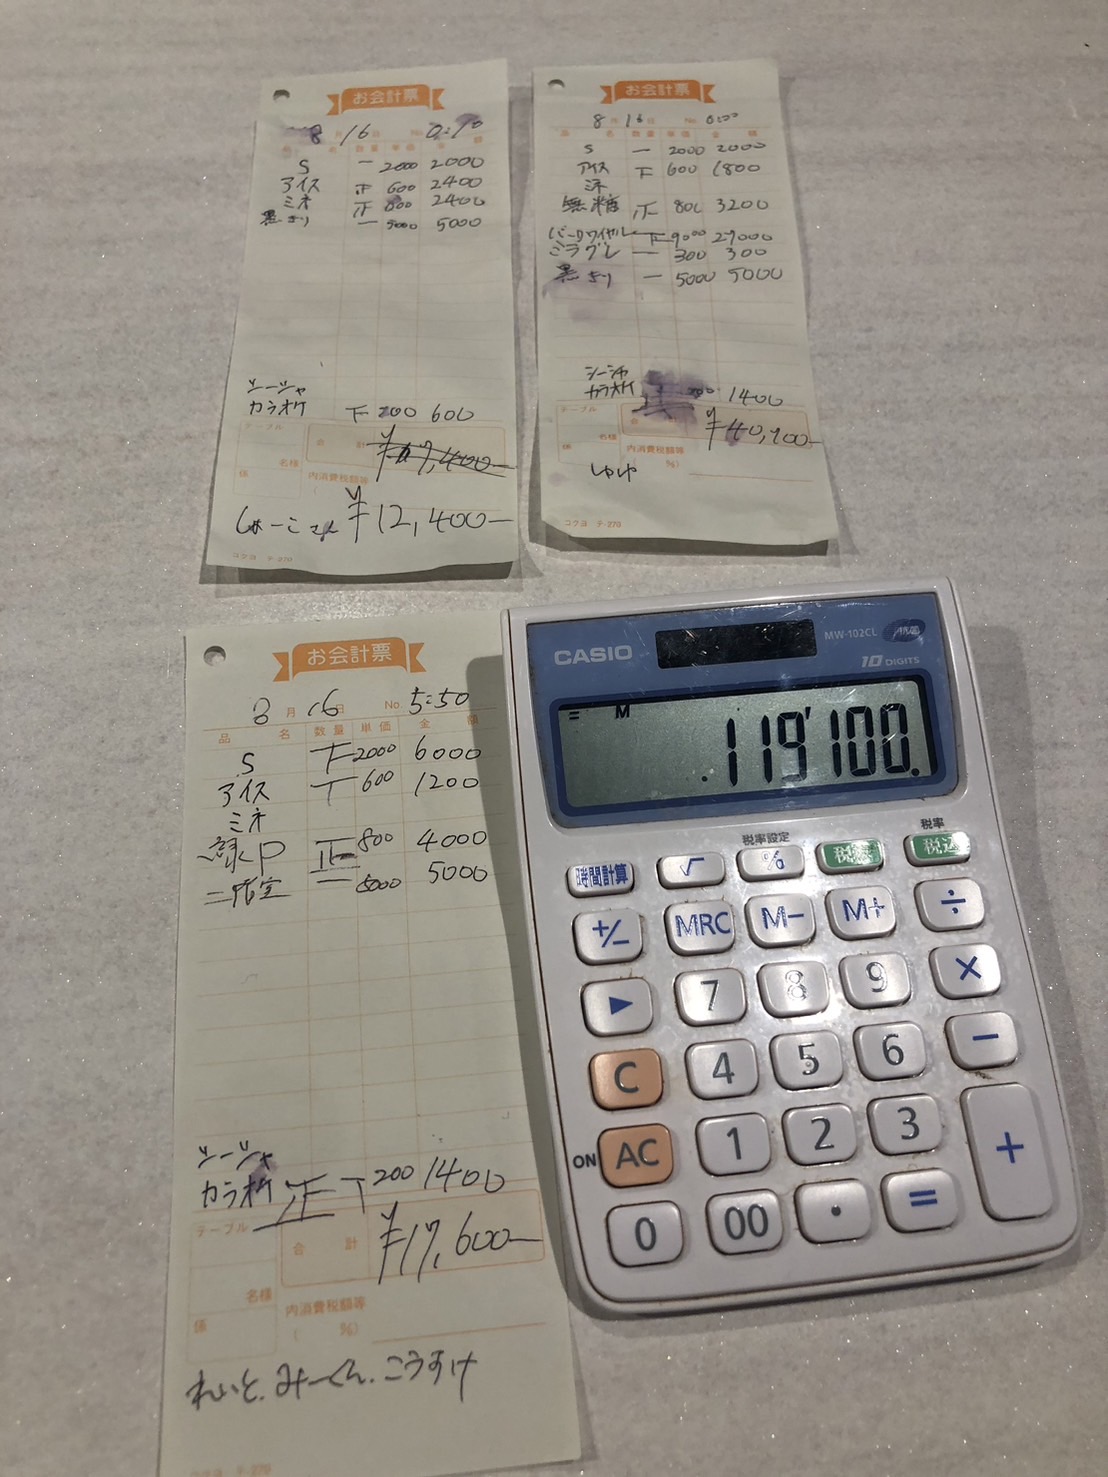 お会計票
8月16日 No. 0:10
品 名 数量 単価 金 額
S 一 2000 2000
アイス 正 600 2400
ミネ 正 800 2400
黒きり 一 5000 5000
シーシャ
カラオケ 下 200 600
テーブル
合 計 ¥17,400-
係 名様 内消費税額等
しょーこさん ¥12,400-
コクヨ テ-270
お会計票
8月16日 No. 0:00
品 名 数量 単価 金 額
S 一 2000 2000
アイス 下 600 1800
ミネ
無糖 正 800 3200
バーロワイヤル 下 9000 27000
ミラグレ 一 300 300
黒きり 一 5000 5000
シーシャ
カラオケ 200 1400
テーブル
合 ¥40,900-
係 名様 内消費税額等
%)
しゅゆ
コクヨ テ-270
お会計票
8月16日 No. 5:50
品 名 数量 単価 金 額
S 下 2000 6000
アイス T 600 1200
ミネ
緑P 正 800 4000
二階堂 一 5000 5000
シーシャ
カラオケ 正T 200 1400
テーブル
合 計 ¥17,600-
係 名様 内消費税額等
( %)
れいと、みーくん、こうすけ
コクヨ テ-270
CASIO MW-102CL 抗菌
10 DIGITS
= M
119'100.
税率設定 税率
時間計算 √ % 税抜 税込
+/− MRC M− M+ ÷
▶ 7 8 9 ×
C 4 5 6 −
ON AC 1 2 3 +
0 00 · =